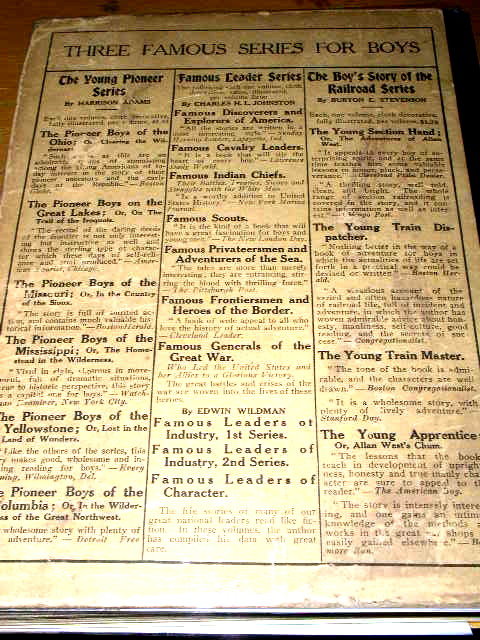 THREE FAMOUS SERIES FOR BOYS
The Young Pioneer
Series
By HARRISON ADAMS
Each one volume, cloth decorative,
fully illustrated, per volume
The Pioneer Boys of the
Ohio; Or, Clearing the Wilderness
"Such books as this are an
The Pioneer Boys on the
Great Lakes; Or, On The
Trail of the Iroquois.
"The recital of the daring deeds
of the frontier is not only interest-
ing but instructive as well and
shows the sterling type of character
which these days of self-reli-
ance and trial produced."—Amer-
ican Tourist, Chicago.
The Pioneer Boys of the
Missouri; Or, In the Country
of the Sioux.
"The story is full of spirited ac-
tion, and contains much valuable his-
torical information."—Boston Herald.
The Pioneer Boys of the
Mississippi; Or, The Home-
stead in the Wilderness.
The Pioneer Boys of the
Yellowstone; Or, Lost in the
Land of Wonders.
"Like the others of the series, this
makes good, wholesome and in-
reading for boys."—Every
Evening, Wilmington, Del.
The Pioneer Boys of the
Columbia; Or, In the Wilder-
ness of the Great Northwest.
wholesome story with plenty of
adventure."—Detroit Free
Famous Leader Series
By CHARLES H. L. JOHNSTON
Famous Discoverers and
Explorers of America.
"All the stories are written in a
most interesting style."
Famous Cavalry Leaders.
"It is a book that will stir the
heart of every boy."—Lawrence
Daily World.
Famous Indian Chiefs.
Their Battles, Treaties, Sieges and
Struggles with the White Man
"Is a worthy addition to United
States History."—New York Marine
Journal.
Famous Scouts.
"It is the kind of a book that will
be a great fascination for boys and
young men."—The New London Day.
Famous Privateersmen and
Adventurers of the Sea.
"The tales are more than merely
interesting; they are entrancing, stir-
ring the blood with thrilling force."—
The Pittsburgh Post.
Famous Frontiersmen and
Heroes of the Border.
"A book of wide appeal to all who
love the history of actual adventure."—
Cleveland Leader.
Famous Generals of the
Great War.
Who Led the United States and
her Allies to a Glorious Victory.
The great battles and crises of the
war are woven into the lives of these
heroes.
By EDWIN WILDMAN
Famous Leaders of
Industry, 1st Series.
Famous Leaders of
Industry, 2nd Series.
Famous Leaders of
Character.
The life stories of many of our
great national leaders read like fic-
tion. In these volumes, the author
has compiled his data with great
care.
The Boy's Story of the
Railroad Series
By BURTON E. STEVENSON
Each, one volume, cloth decorative,
fully illustrated, per volume,
The Young Section Hand;
Or, The Adventures of Allan
West.
"It appeals to every boy of en-
terprising spirit, and at the same
time teaches him some valuable
lessons in honor, pluck, and perse-
verance."—Cleveland Plain Dealer.
The Young Train Dis-
patcher.
"Nothing better in the way of a
book of adventure for boys in
which the actualities of life are set
forth in a practical way could be
devised or written."—Boston Her-
ald.
"A vivacious account of the
varied and often hazardous nature
of railroad life, full of incident and
adventure, in which the author has
woven admirable advice about hon-
esty, manliness, self-culture, good
reading, and the secrets of suc-
cess."—Congregationalist.
The Young Train Master.
"The tone of the book is admi-
rable, and the characters are well
drawn."—Boston Congregationalist.
"It is a wholesome story, with
plenty of lively adventure."—
The Young Apprentice;
Or, Allan West's Chum.
"The lessons that the book
teach in development of upright-
ness, honesty and true manly char-
acter are sure to appeal to the
reader."—The American Boy.
"The story is intensely interest-
ing, and one gains an intimate
knowledge of the methods
works in the great car shops
easily gained elsewhere."—Balti-
more Sun.